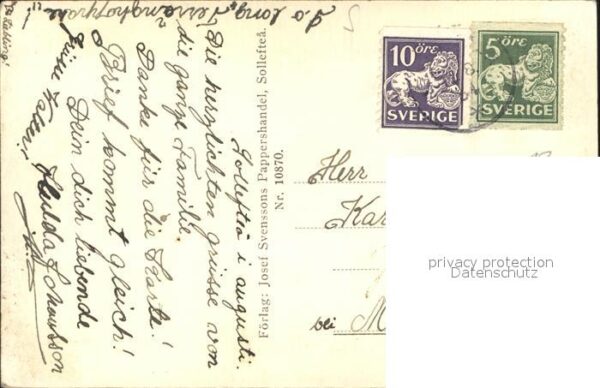 Sollefteå i augusti.
Die herzlichsten grüsse von
die ganze Familie.
Danke für die Karte!
Brief kommt gleich!
Dein dich liebende
Hulda
So long,
Förlag: Josef Svenssons Pappershandel, Sollefteå.
Nr. 10870.
10 ÖRE
SVERIGE
5 ÖRE
SVERIGE
Herr
Kar
bei M
privacy protection
Datenschutz